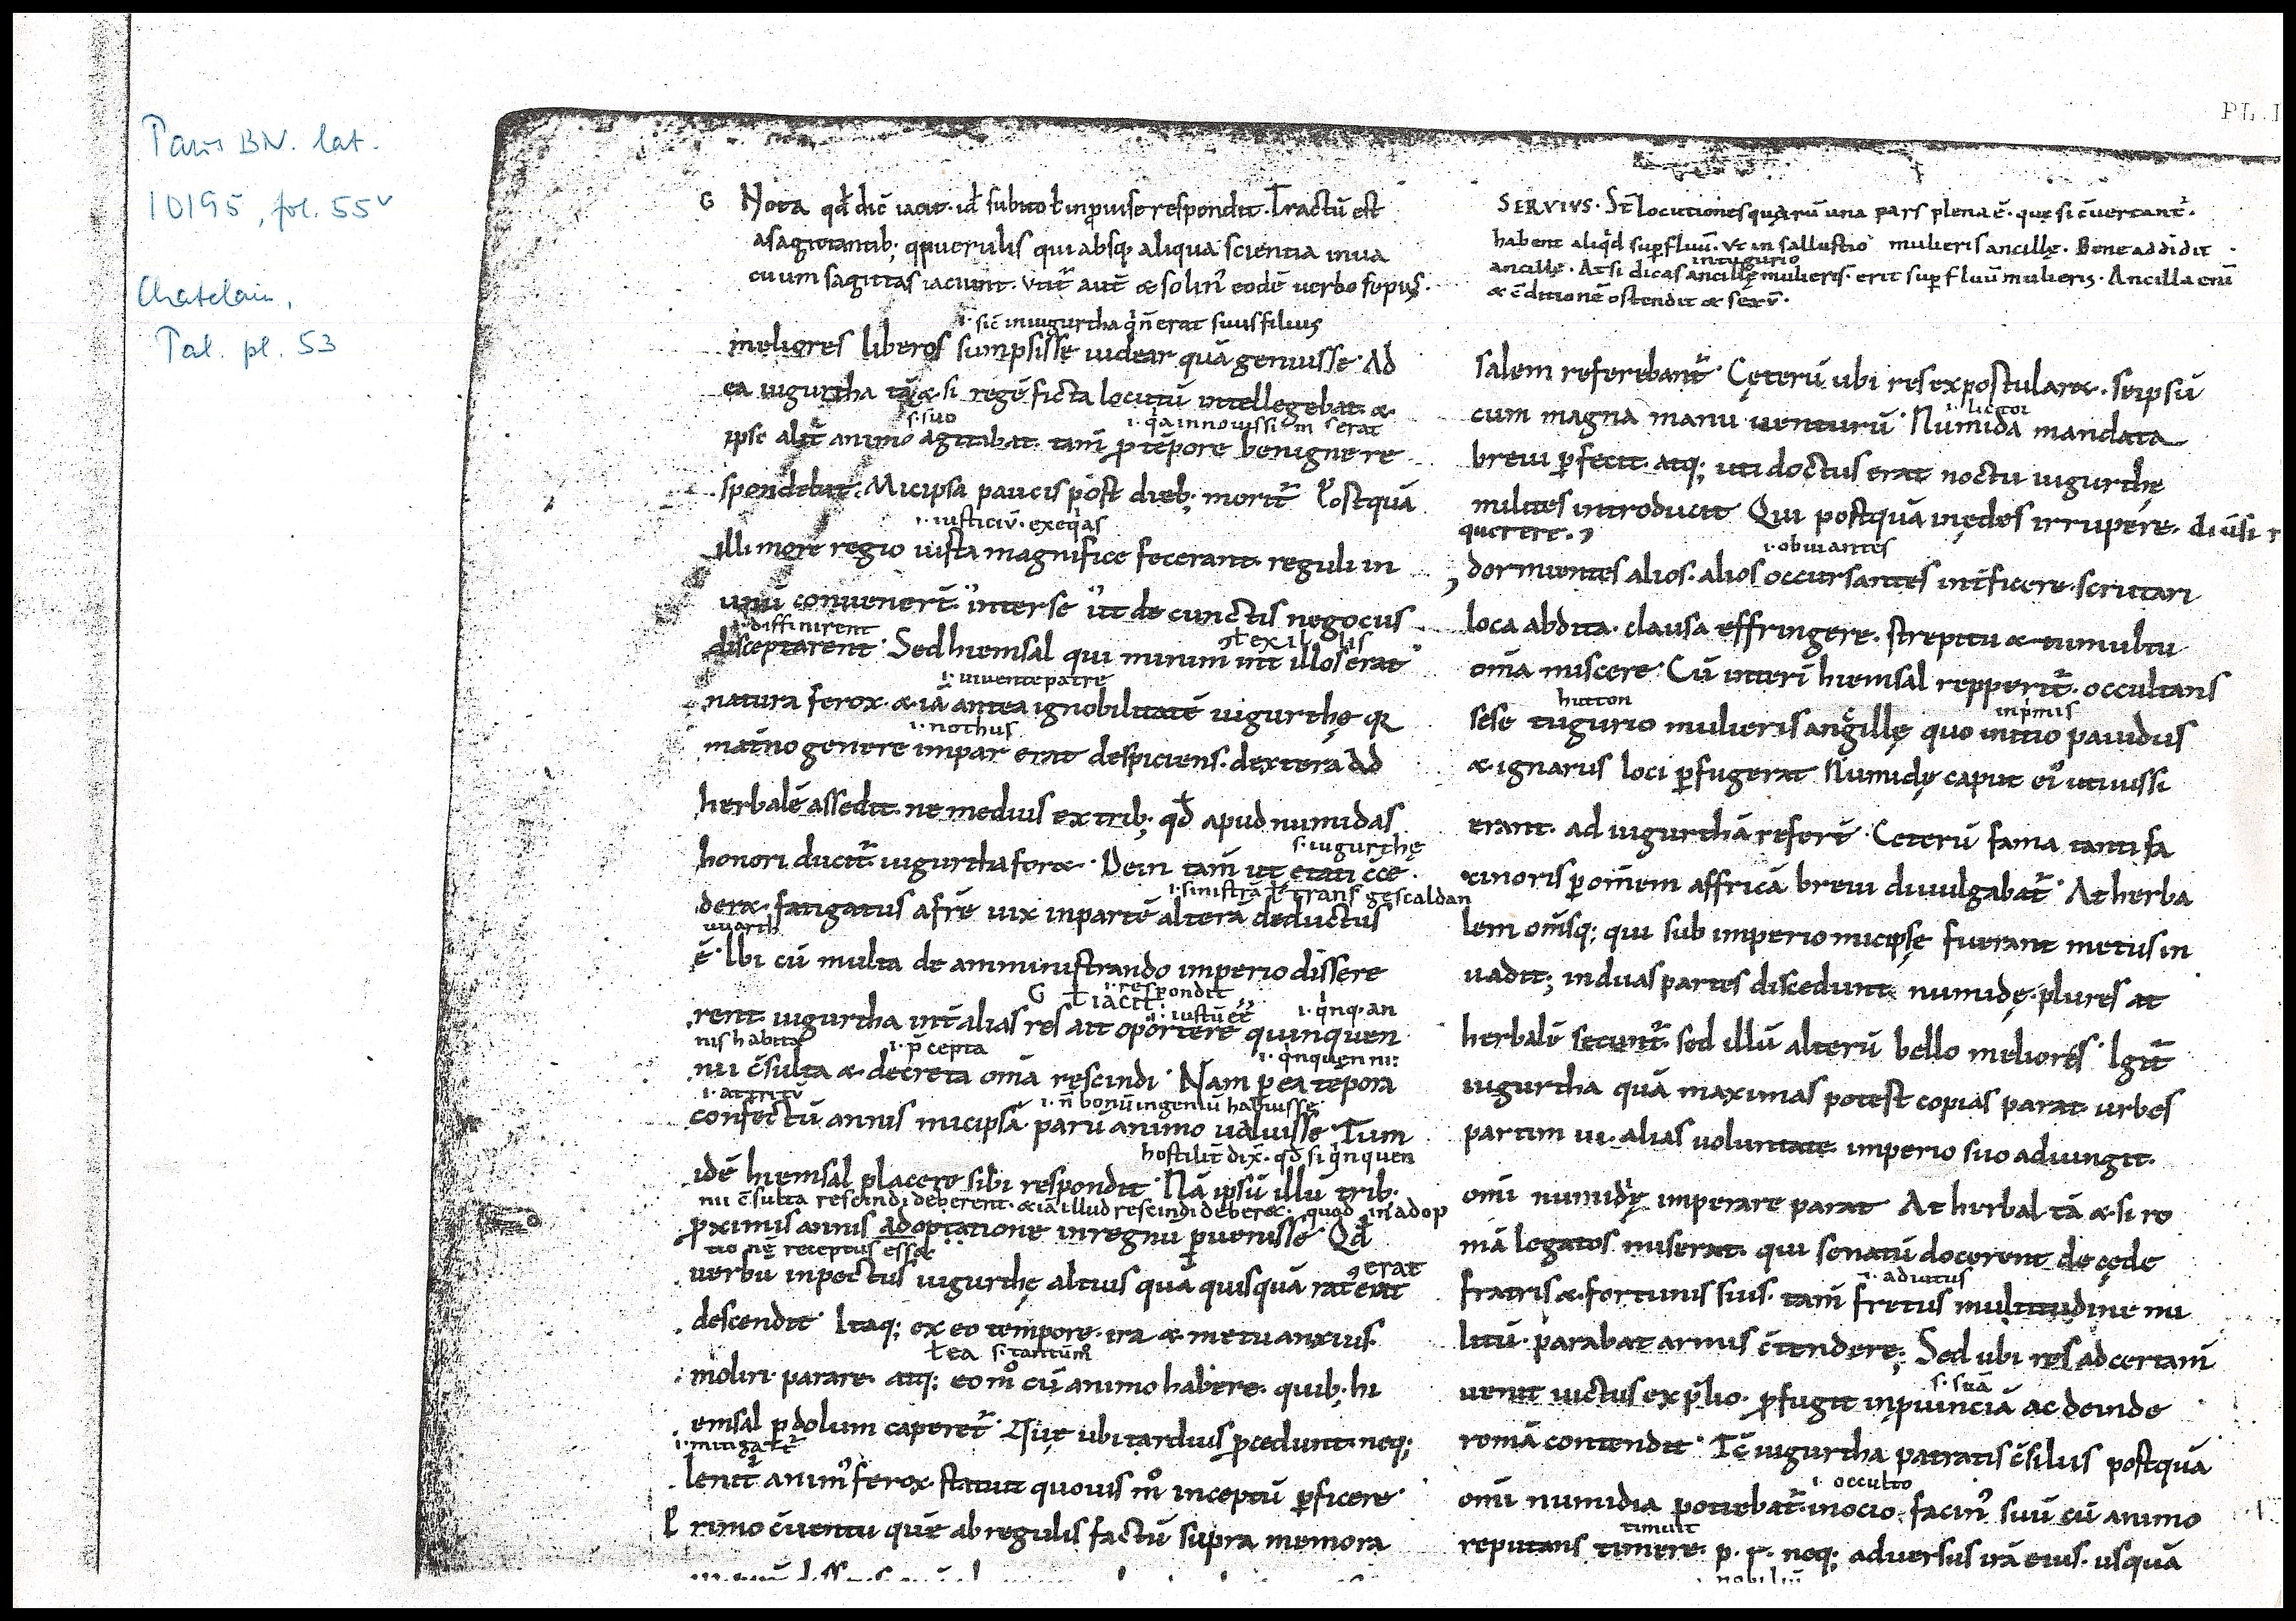 PL. I
Paris BN. lat.
10195, fol. 55v
Chatelain,
Pal. pl. 53
G Nota qđ dic̄ iacit· id subito ł inprouise respondit· Tractū est
a sagittantib; & puerulis qui absq; aliqua scientia inua
cuum sagittas iaciunt· Vtit̄ aut̄ & solin᾽ eodē verbo sępius·
·i· sic̄ in iugurtha q n̄ erat suus filius
meliores liberos sumpsisse uidear quā genuisse· Ad
ea iugurtha tā & si regē ficta locutū intellegebat· &
s· suo ·i· qa in nouissi m serat
ipse alit̄ animo agitabat· tam̄ p tēpore benigne re
spondebat· Micipsa paucis post dieb; morit̄ Postquā
·i· iusticiū· exeqas
illi more regio iusta magnifice fecerant· reguli in
unū convenert̄ inter se ut de cunctis negociis
·i· diffinirent ł ex il lis
disceptarent· Sed hiemsal qui minim᾽ int̄ illos erat
·i· uiuente patre
natura ferox· & iā antea ignobilitatē iugurthę qa
·i· nothus
mat̄no genere impar erat despiciens· dextera Ad
herbalē assedit· ne medius ex trib; qđ apud numidas
s· iugurthę
honori ducit̄ iugurtha foret· Dein tam̄ ut etati cc̄e
·i· sinistrā ł trans gescaldan
deret· fatigatus a fr̄e uix in partē alterā deductus
uuarth
ē· Ibi cū multa de amministrando imperio dissere
G ł iacit ·i· respondit ·i· iustū eē ·i· qnq· an
rent· iugurtha int̄ alias res ait oportere quinquen
nis habita ·i· p̄cepta ·i· qnquenni:
nii c̄sulta & decreta om̄a rescindi· Nam p ea tēpora
·i· attritū ·i· n̄ bonū ingeniū habuisse
confectū annis micipsā parū animo ualuisse· Tum
hostilit̄ dix̄· qđ si qnquen
idē hiemsal placere sibi respondit· Nā ipsū illū trib·
nii c̄sulta rescindi deberent· & iā illud rescindi deberet· quod in adop
pximis annis adoptatione in regnū puenisse· Qđ
tio nē receptus esset
uerbū in pectus iugurthę altius quā quisquā rat᾽ erat
descendit· Itaq; ex eo tempore· ira & metu anxius·
ł ea s· tantūm̊
moliri· parare· atq; eo m̊ cū animo habere· quib; hi
emsal p dolum caperet̄· Quę ubi tardius pcedunt· neq;
·i· mitigatē̄
lenit̄ anim᾽ ferox· statuit quouis m̊ inceptū pficere·
P rimo c̄uentu quē ab regulis factū supra memora
SERVIVS· St̄ locutiones quarū una pars plena ē· que si c̄uertant̄·
habent aliqđ supfluū· Vt in sallustio mulieris ancillę· Bene addidit
in tugurio
ancillę· At si dicas ancillę mulieris· erit supfluū mulieris· Ancilla eni
& c̄ditionē ostendit & sexū·
salem referebant̄· Cęterū ubi res ex postularet· seipsū
·i· lictor
cum magna manu uenturū· Numida mandata
breui pfecit· atq; uti doctus erat noctu iugurthę
milites introducit· Qui postquā in ędes irrupere· diūsi r
querere· ·i· obuiantes
dormientes alios· alios occursantes int̄ficere· scrutari
loca abdita· clausa effringere· strepitu & tumultu
om̄a miscere· Cū interī hiemsal repperit̄· occultans
hutton in pmis
sese tugurio mulieris ancillę quo initio pauidus
& ignarus loci pfugerat· Numidę caput ei᾽ uti iussi
erant· ad iugurthā refert̄· Ceterū fama tanti fa
cinoris p omnem affricā breui diuulgabat̄· At herba
lem om̄isq; qui sub imperio micipsę fuerant metus in
uadit; in duas partes discedunt numidę· plures at
herbalē secunt̄· sed illū alterū bello meliores· Igit̄
iugurtha quā maximas potest copias parat· urbes
partim ui· alias uoluntate imperio suo adiungit·
om̄i numidię imperare parat· At herbal tā & si ro
mā legatos miserat· qui senatū docerent de cęde
·i· aduitus
fratris & fortunis suis· tam̄ fretus multitudine mi
litū· parabat armis c̄tendere; Sed ubi res ad certam̄
s· suā
uenit uictus ex p̄lio· pfugit in puinciā ac deinde
romā contendit· Tc̄ iugurtha patratis c̄siliis postquā
·i· occulto
om̄i numidia potiebat̄· in ocio· facin᾽ suū cū animo
timuit
reputans timere· p· r· neq; aduersus irā eius· usquā
nobiliū